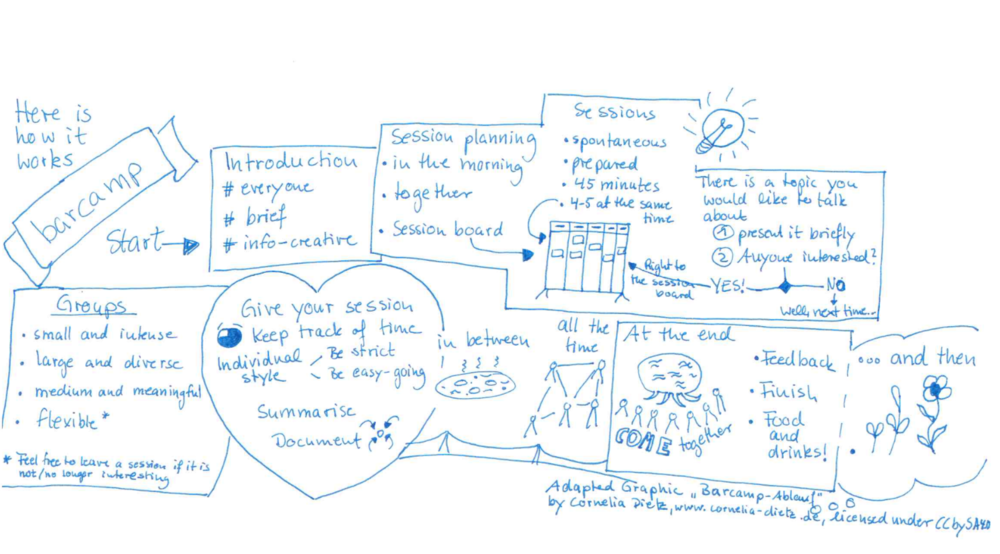 Here is
how it
works
barcamp
Start
Introduction
# everyone
# brief
# info-creative
Session planning
• in the morning
• together
• Session board
Sessions
• spontaneous
• prepared
• 45 minutes
• 4-5 at the same
time
There is a topic you
would like to talk
about
① present it briefly
② Anyone interested?
YES!
NO
Right to
the session
board
Well, next time...
Groups
• small and intense
• large and diverse
• medium and meaningful
• flexible*
* Feel free to leave a session if it is
not/no longer interesting
Give your session
Keep track of time
Individual
style
Be strict
Be easy-going
Summarise
Document
in between
all the
time
At the end
COME together
• Feedback
• Finish
• Food
and
drinks!
... and then
Adapted Graphic „Barcamp-Ablauf"
by Cornelia Dietz, www.cornelia-dietz.de, licensed under CC by SA 4.0